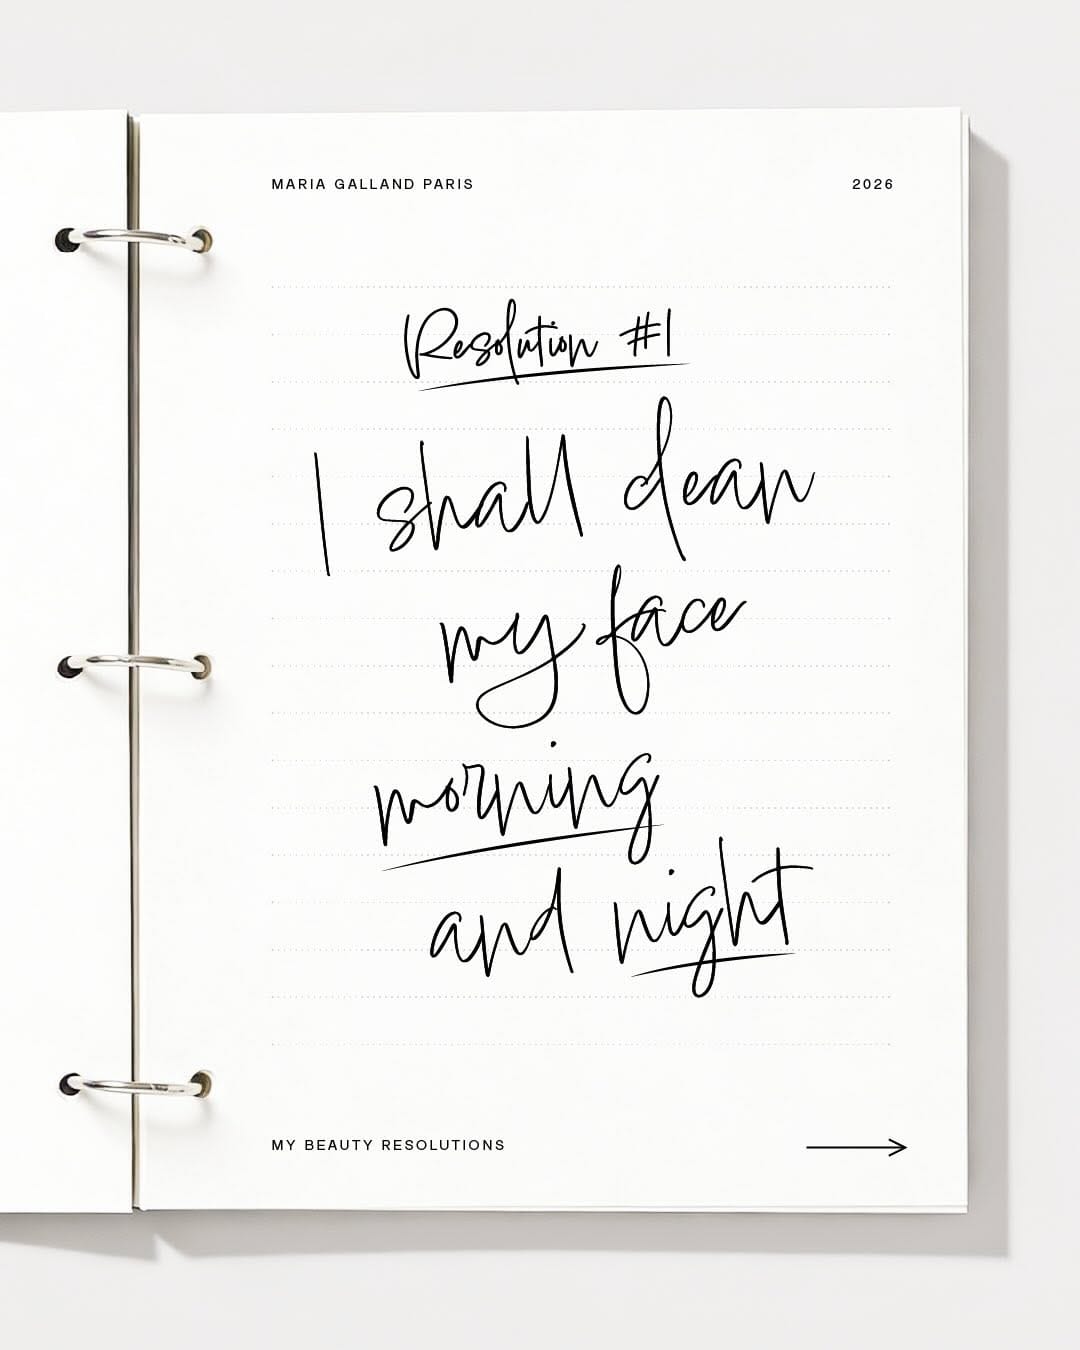 MARIA GALLAND PARIS 2026
Resolution #1
I shall clean
my face
morning
and night
MY BEAUTY RESOLUTIONS